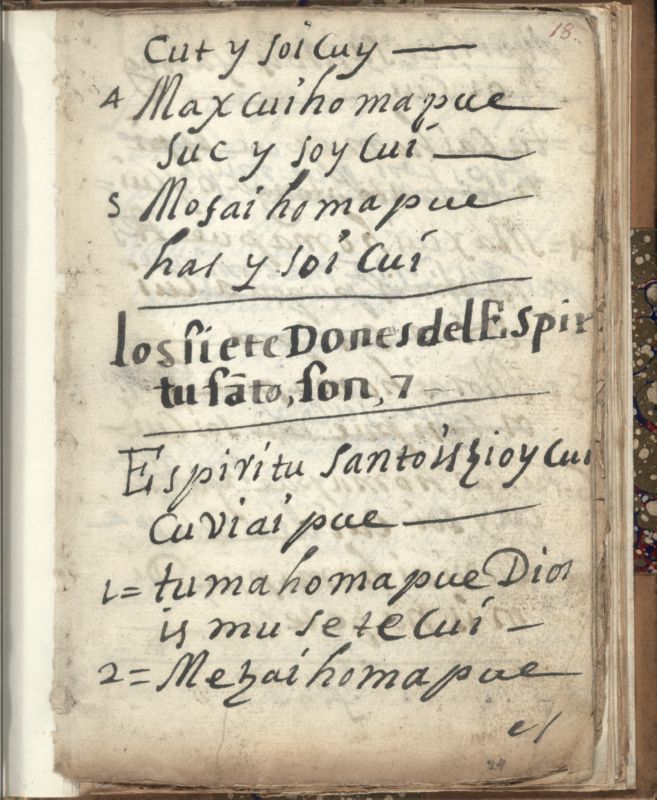 18.
Cut y soi Cuy —
4 Maxcuihomapue
suc y soy Cui —
5 Mosaihomapue
has y soi Cui
los siete Dones del Espir
tu sãto, son, 7
Espiritu Santo is hioy Cui
Cuviaipue —
1= tumahomapue Dios
is mu se te Cui —
2= Mezaihomapue
el
24